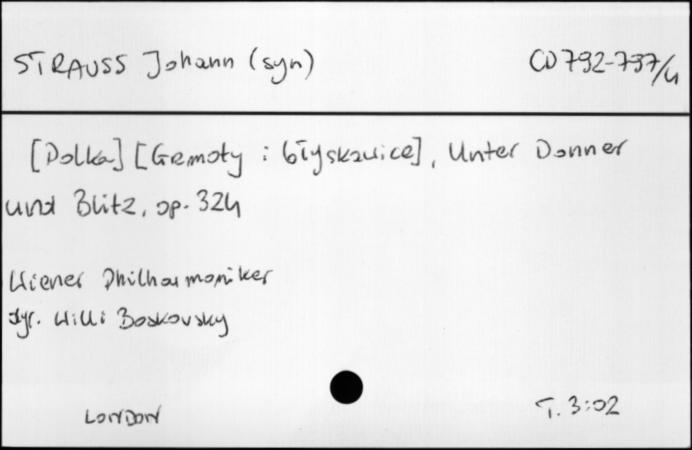 STRAUSS Johann (syn)
CD 792-797/4
[Polka] [Grzmoty i błyskawice], Unter Donner
und Blitz, op. 324
Wiener Philharmoniker
dyr. Willi Boskovsky
LONDON
T. 3:02